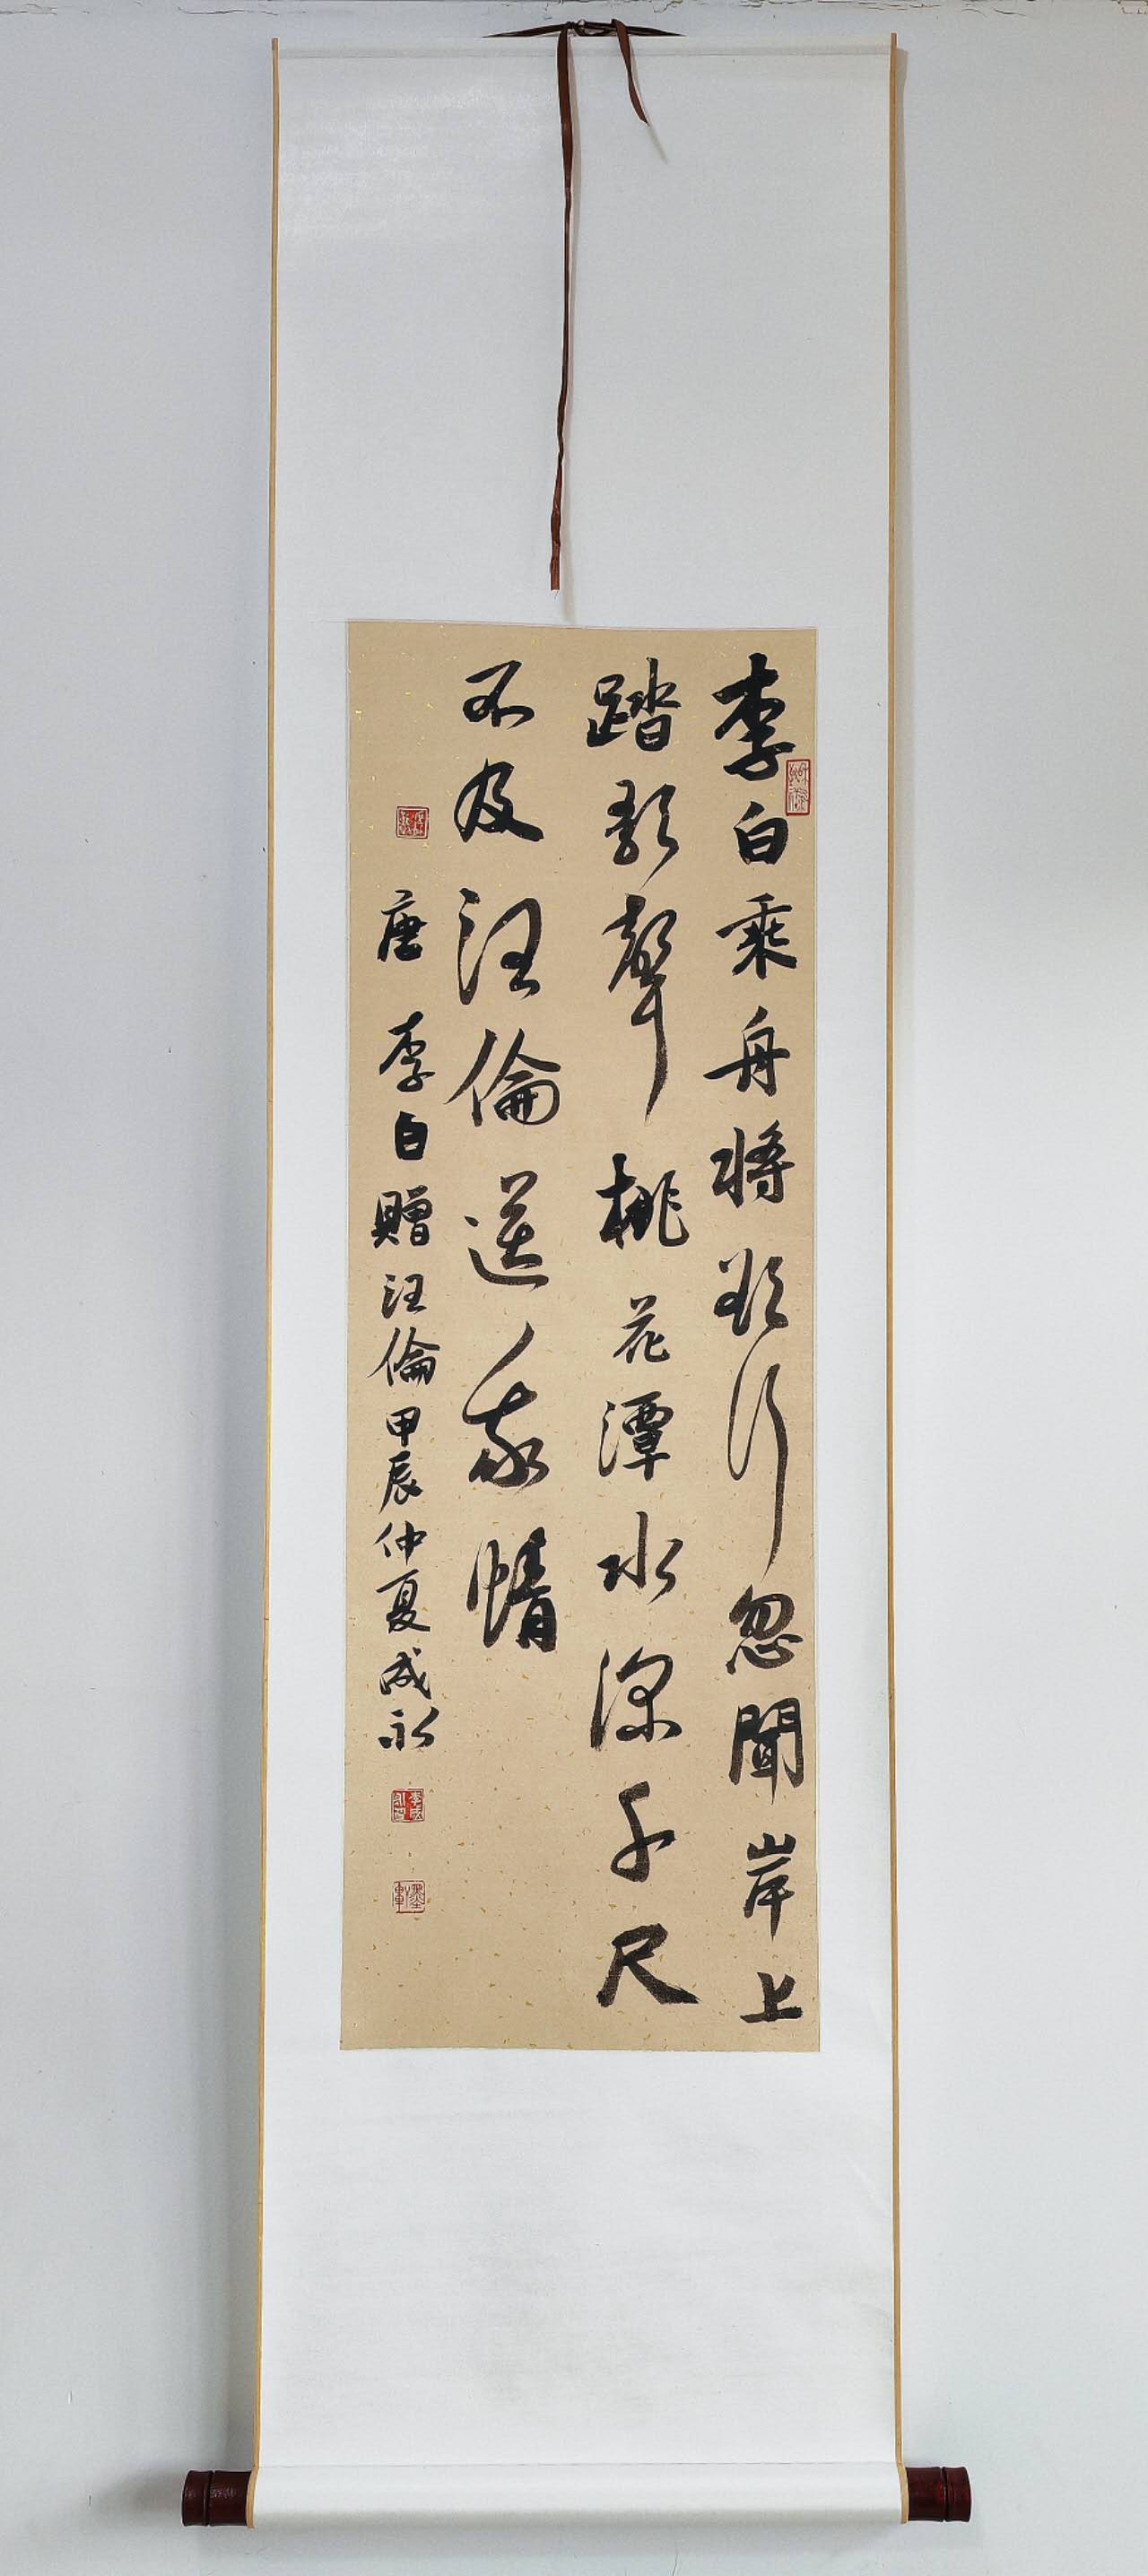 李白乘舟將欲行忽聞岸上
踏歌聲桃花潭水深千尺
不及汪倫送我情
唐李白贈汪倫甲辰仲夏成永